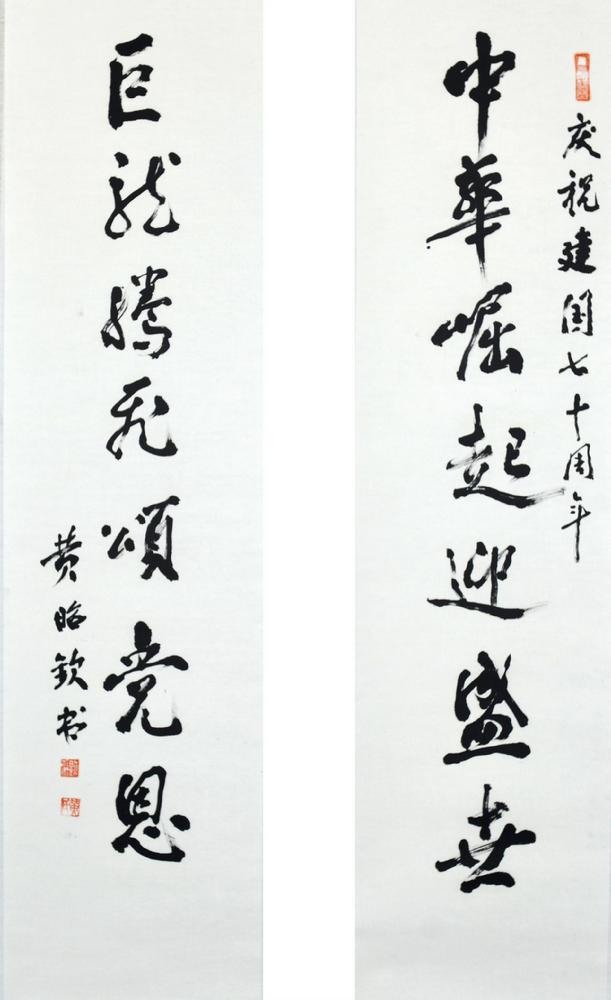 庆祝建国七十周年
中华崛起迎盛世
巨龙腾飞颂党恩
黄昭钦书